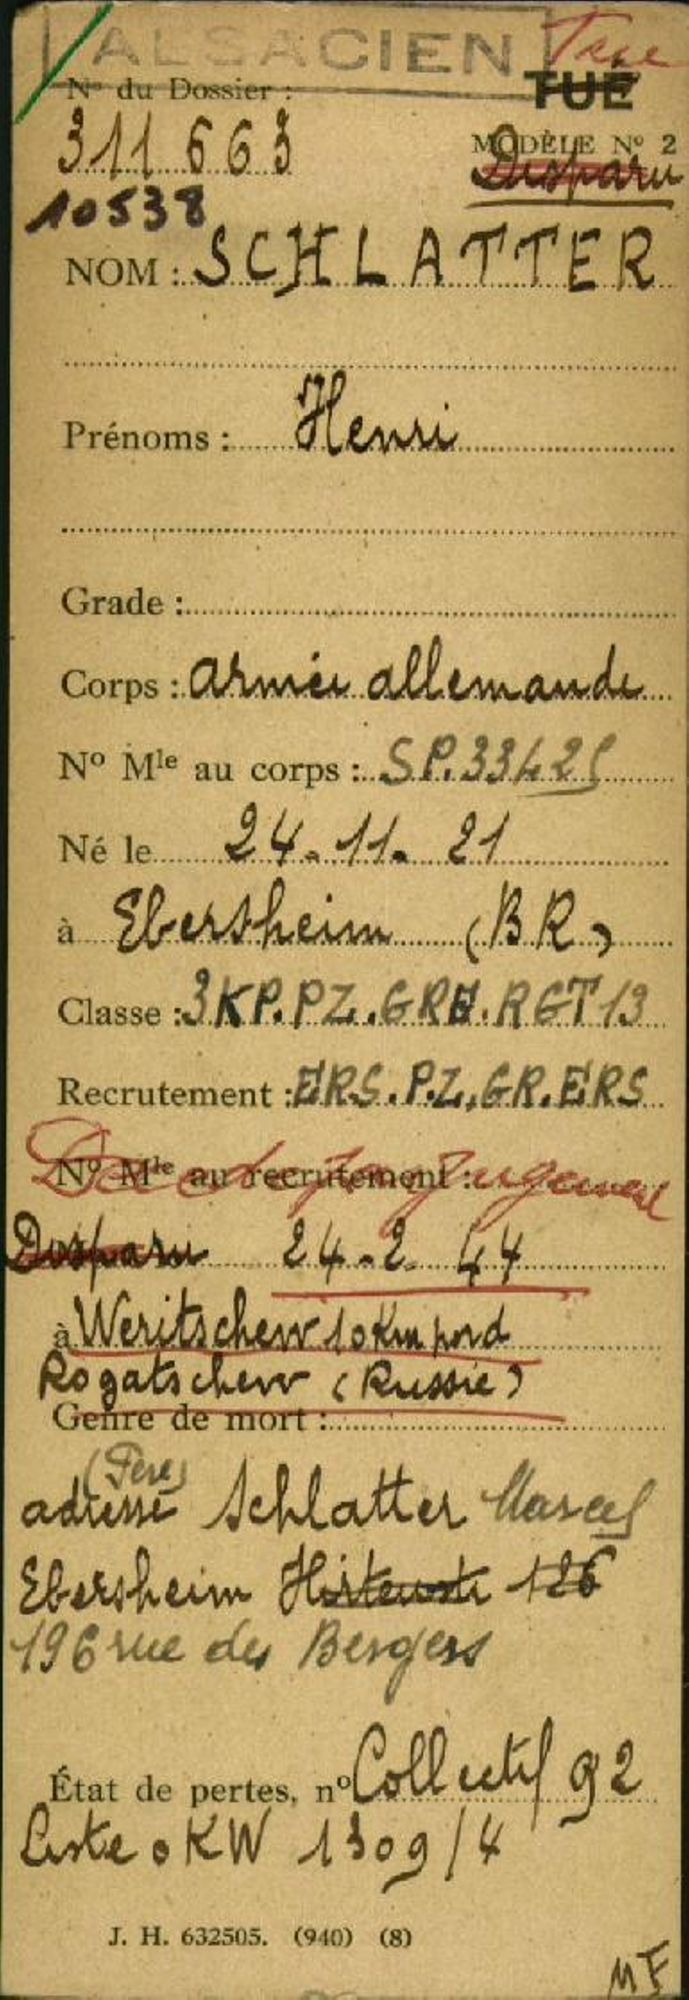 ALSACIEN Tué
N° du Dossier : TUÉ
311 663 MODÈLE N° 2
Disparu
10538
NOM : SCHLATTER
Prénoms : Henri
Grade :
Corps : armée allemande
N° Mle au corps : SP. 33425
Né le 24.11.21
à Ebersheim (BR)
Classe : 3 KP. PZ. GRE. RGT 13
Recrutement : ERS. PZ. GR. ERS
N° Mle au recrutement :
Décédé par jugement
Disparu 24-2-44
à Weritschew 10 Km nord
Rogatschew (Russie)
Genre de mort :
(Père)
adresse Schlatter Marcel
Ebersheim Hirtenstr 126
196 rue des Bergers
État de pertes, n° Collectif 92
Liste OKW 1309/4
J. H. 632505. (940) (8)
MF